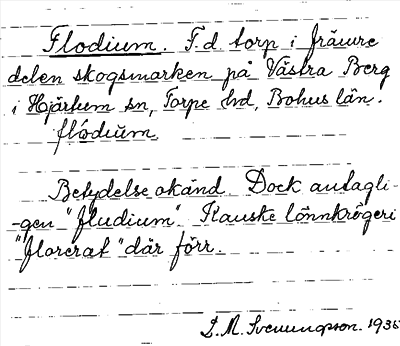 Flodium. F.d. torp i främre
delen skogsmarken på Västra Berg
i Hjärtum sn, Torpe hd, Bohus län.
flódiŭm
Betydelse okänd. Dock antagli-
gen "fludium". Kanske lönnkrögeri
"florerat" där förr.
S. M. Svenungsson. 1935